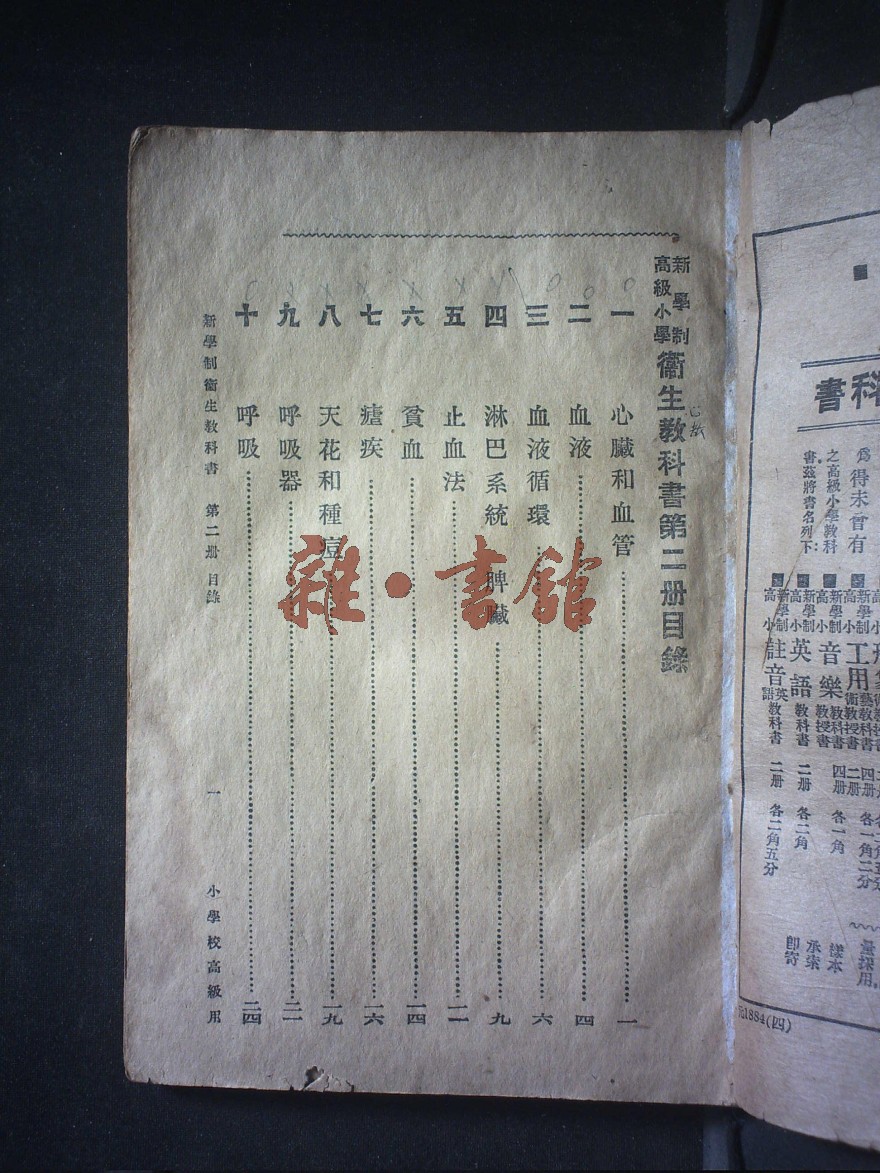 新學制
高級小學
衞生敎科書第二册目錄
一 心臟和血管 一
二 血液 四
三 血液循環 六
四 淋巴系統 脾臟 九
五 止血法 一一
六 貧血 一四
七 瘧疾 一六
八 天花和種痘 一九
九 呼吸器 二一
十 呼吸 二四
新學制衞生敎科書 第二册 目錄 一 小學校高級用
雜·書館
科書
爲得未曾有
之高級小學敎科
書茲將書名列下
新學制高小音樂敎科書敎授書 四册 各一角
新學制高小英語敎科書 二册 各二角
新學制高小註音英語敎科書 二册 各二角五分
量採用
樣本
承索
卽寄
1884(四)